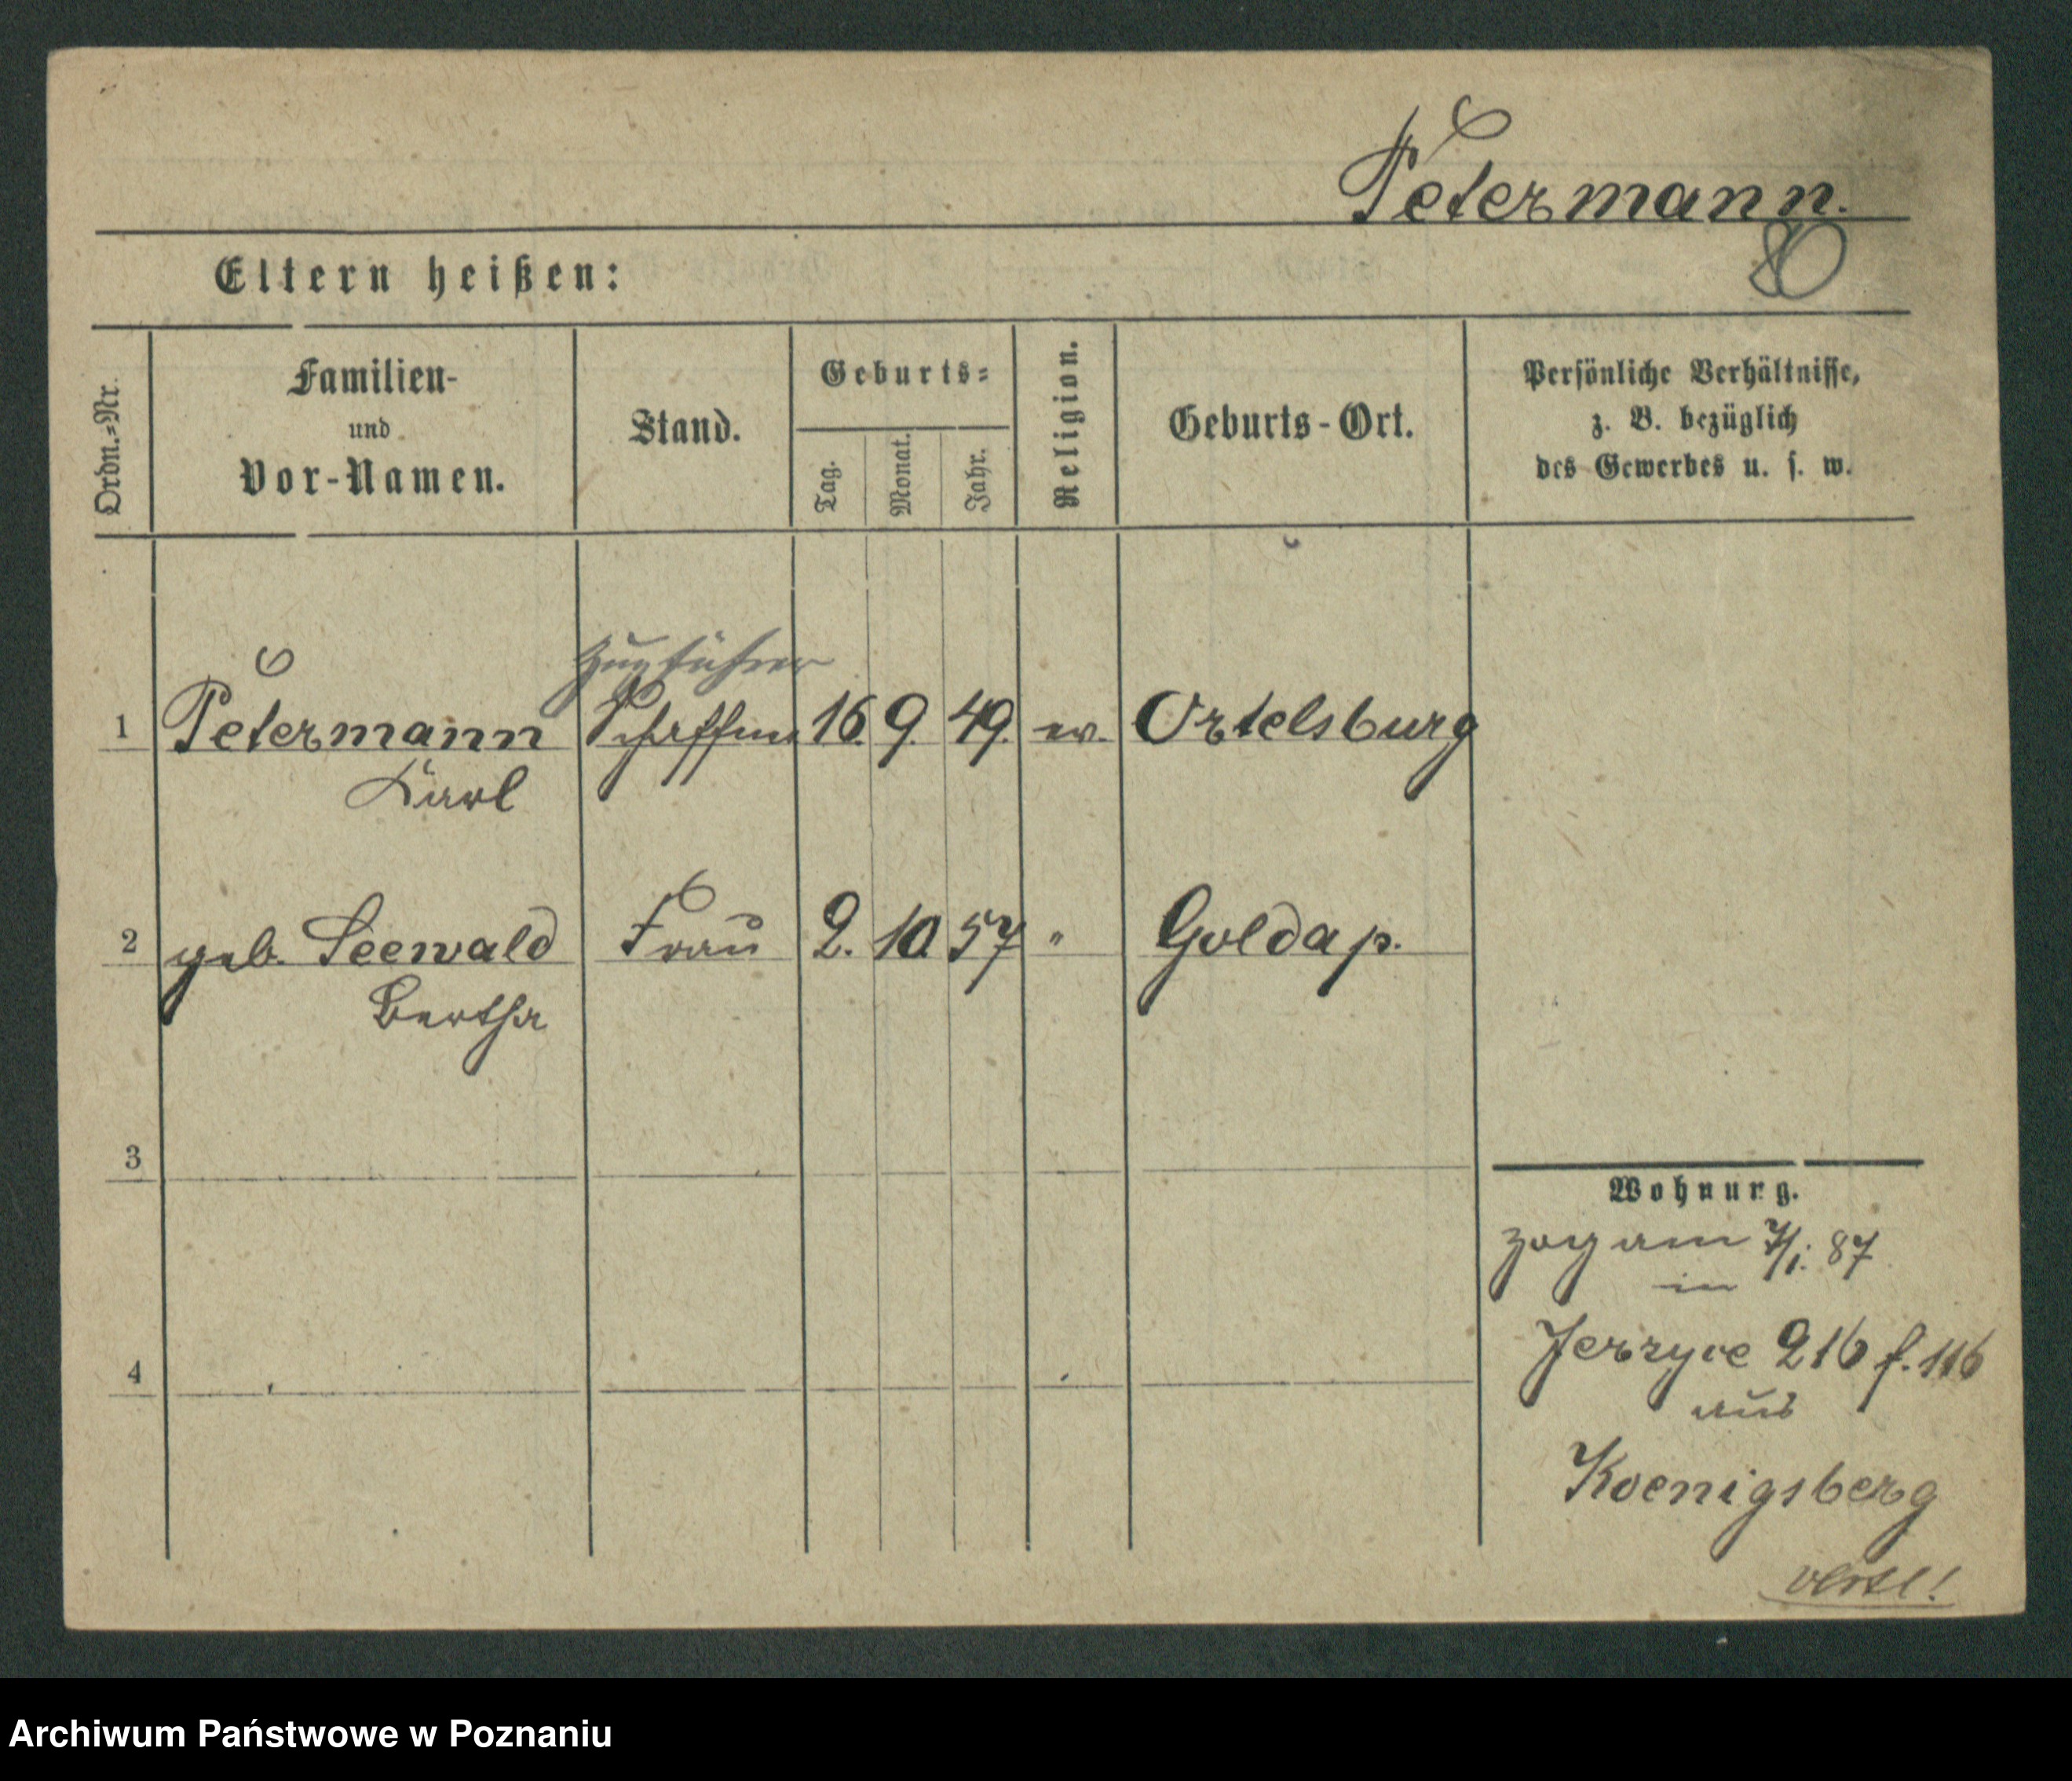 Petermann.
80
Eltern heißen:
Ordn.=Nr.
Familien-
und
Vor-Namen.
Stand.
Geburts=
Tag.
Monat.
Jahr.
Religion.
Geburts-Ort.
Persönliche Verhältnisse,
z. B. bezüglich
des Gewerbes u. s. w.
Zugführer
1 Petermann Schaffner 16. 9. 49. ev. Ortelsburg
Karl
2 geb. Seewald Frau 2. 10. 57 " Goldap.
Bertha
3
Wohnung.
zog am 7/1. 87
in
Jerzyce 216 f. 116
4
aus
Koenigsberg
Archiwum Państwowe w Poznaniu